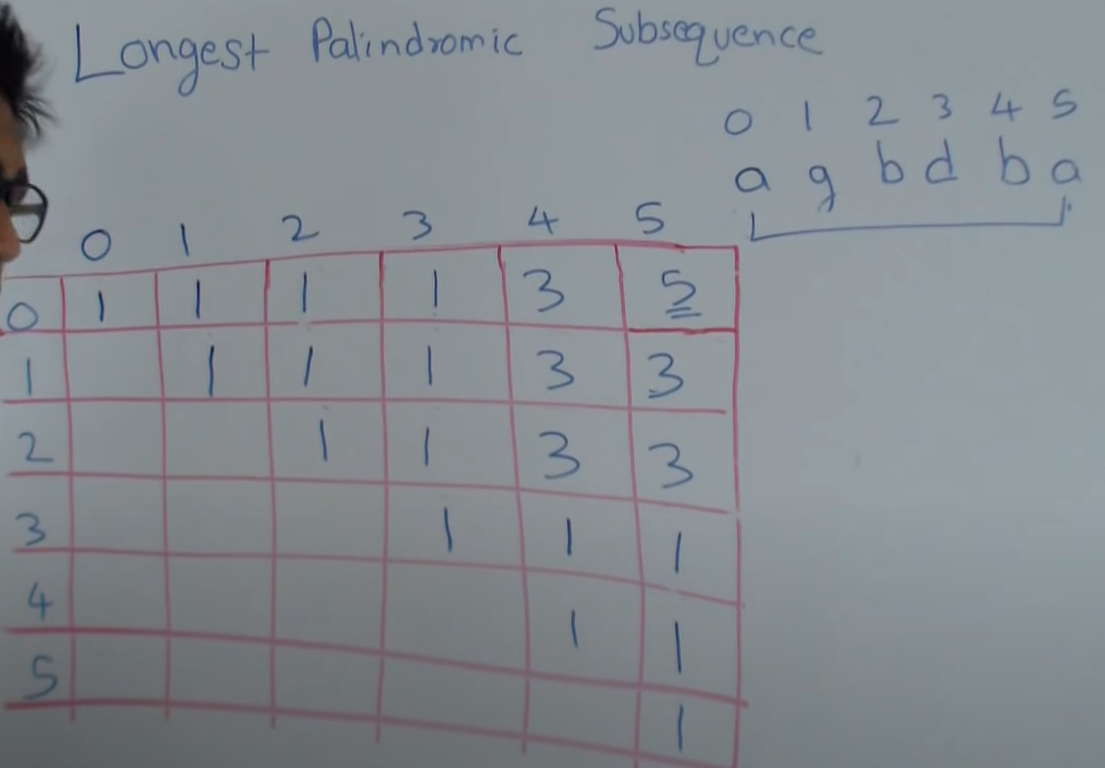 Longest Palindromic Subsequence
0 1 2 3 4 5
a g b d b a
0 1 2 3 4 5
0 1 1 1 1 3 5
1 1 1 1 3 3
2 1 1 3 3
3 1 1 1
4 1 1
5 1